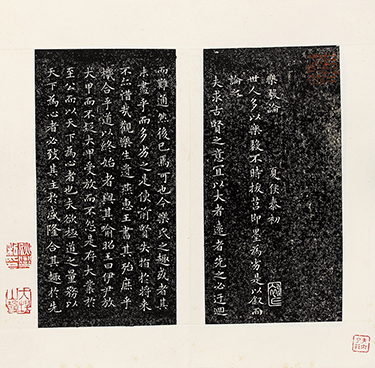 樂毅論 夏侯泰初
世人多以樂毅不時拔莒即墨為劣是以叙而
論之
夫求古賢之意宜以大者遠者先之必迂迴
而難通然後已焉可也今樂氏之趣或者其
未盡乎而多劣之是使前賢失指於將來
不亦惜哉觀樂生遺燕惠王書其殆庶乎
機合乎道以終始者與其喻昭王曰伊尹放
大甲而不疑大甲受放而不怨是存大業於
至公而以天下為心者也夫欲極道之量務以
天下為心者必致其主於盛隆合其趣於先